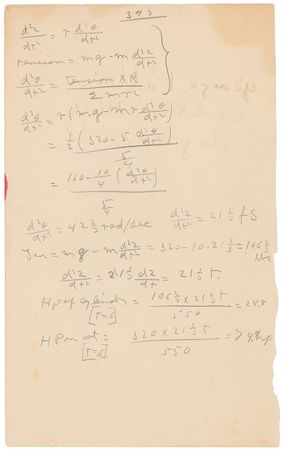 393
d²z/dt² = r d²θ/dt²
tension = mg - m d²z/dt²
d²θ/dt² = tension × R / Σmr²
d²θ/dt² = r(mg - mr d²θ/dt²)
= ½(320 - 5 d²θ/dt²) / 5/4
= (160 - 10/4 (d²θ/dt²)) / 5/4
d²θ/dt² = 42 ⅔ rad/sec d²z/dt² = 21 ⅓ fS
Ten = mg - m d²z/dt² = 320 - 10·21 ⅓ = 106 ⅔ lbs
d²z/dt² = 21 ⅓ dz/dt = 21 ⅓ t.
HP of cylinder = 106 ⅔ × 21 ⅓ t / 550 = 24.8
[T=6]
HP on wt. = 320 × 21 ⅓ t / 550
[T=6]